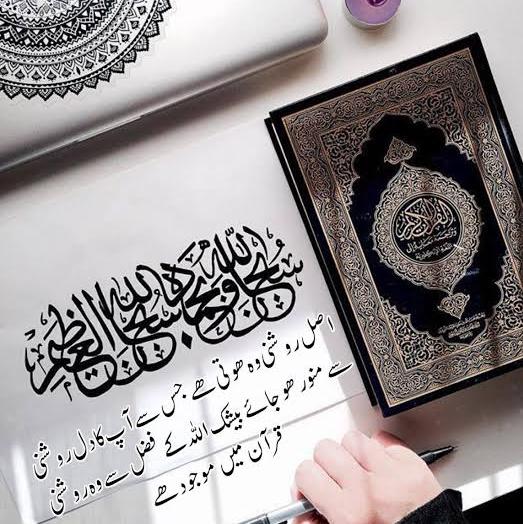 سبحان الله وبحمده سبحان الله العظيم
اصل روشنی وہ ھوتی ھے جس سے آپ کا دل روشنی
سے منور ھو جائے بیشک اللہ کے فضل سے وہ روشنی
قرآن میں موجود ھے
القرآن الكريم